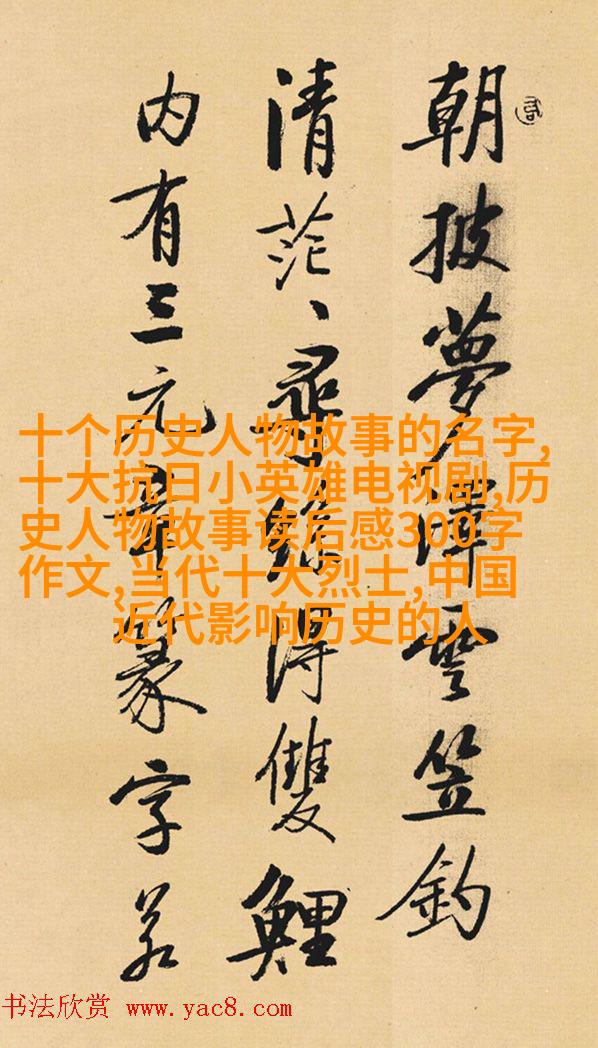 朝披夢澤雲笠釣
清茫、尋絲得雙鯉
内有三元章篆字若
十个历史人物故事的名字,
十大抗日小英雄电视剧,历
史人物故事读后感300字
作文,当代十大烈士,中国
近代影响历史的人
书法欣赏 www.yac8.com